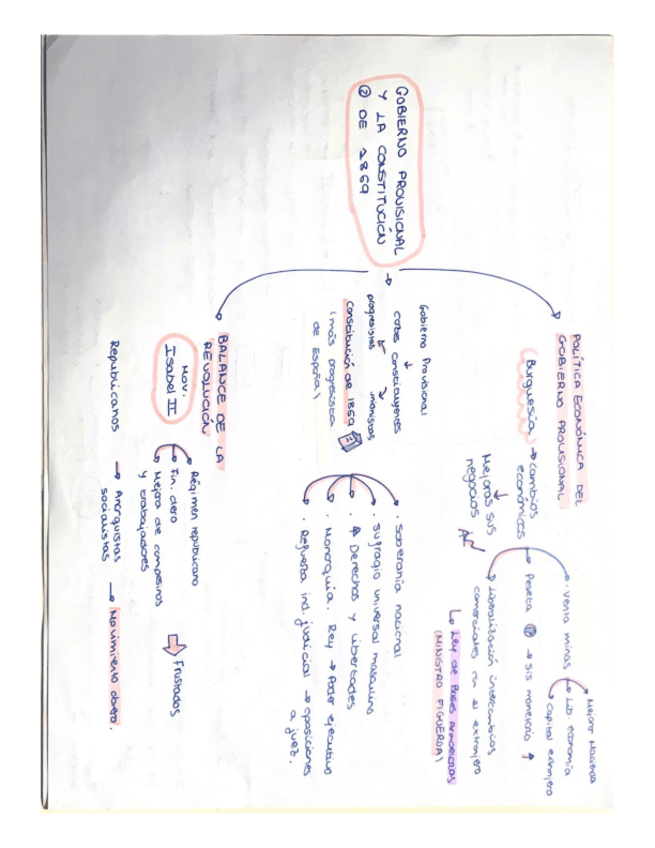 GOBIERNO PROVISIONAL
Y LA CONSTITUCIÓN
② DE 1869
POLÍTICA ECONÓMICA DEL
GOBIERNO PROVISIONAL
Burguesía → cambios
económicos
Mejoras sus
negocios
· Venta minas
Mejorar Hacienda
Lib. economía
Capital extranjero
Peseta → sis monetario ↑
Liberalización intercambios
comerciales con el extranjero
↳ Ley de Bases Arancelarias
(MINISTRO FIGUEROA)
Gobierno Provisional
↓
cortes constituyentes
progresistas unionistas
Constitución de 1869
(más progresista
de España)
· Soberanía nacional
· Sufragio universal masculino
· Derechos y libertades
· Monarquía. Rey → Poder ejecutivo
· Refuerza ind. judicial → oposiciones
a juez.
BALANCE DE LA
REVOLUCIÓN
Mov.
Isabel II
Régimen republicano
Fin. clero
Mejora de campesinos
y trabajadores
Frustados
Republicanos → Anarquistas
socialistas
→ Movimiento obrero.